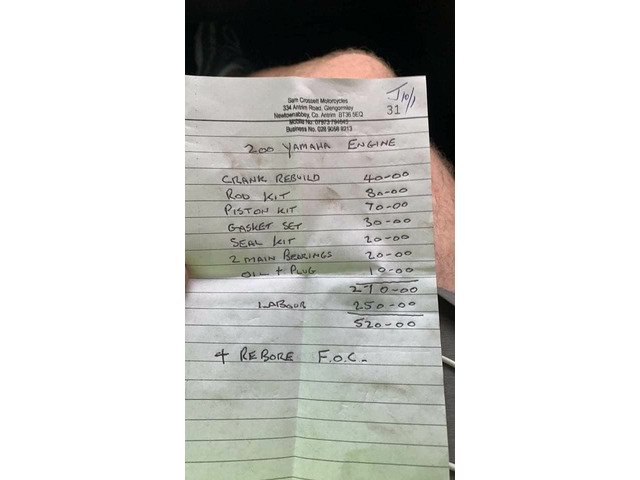 Sam Crossett Motorcycles
334 Antrim Road, Glengormley
Newtownabbey, Co. Antrim BT36 5EQ
Mobile No. 07973 784645
Business No. 028 9058 9213
31
200 YAMAHA ENGINE
CRANK REBUILD 40-00
ROD KIT 80-00
PISTON KIT 70-00
GASKET SET 30-00
SEAL KIT 20-00
2 MAIN BEARINGS 20-00
OIL + PLUG 10-00
270-00
LABOUR 250-00
520-00
+ REBORE F.O.C.